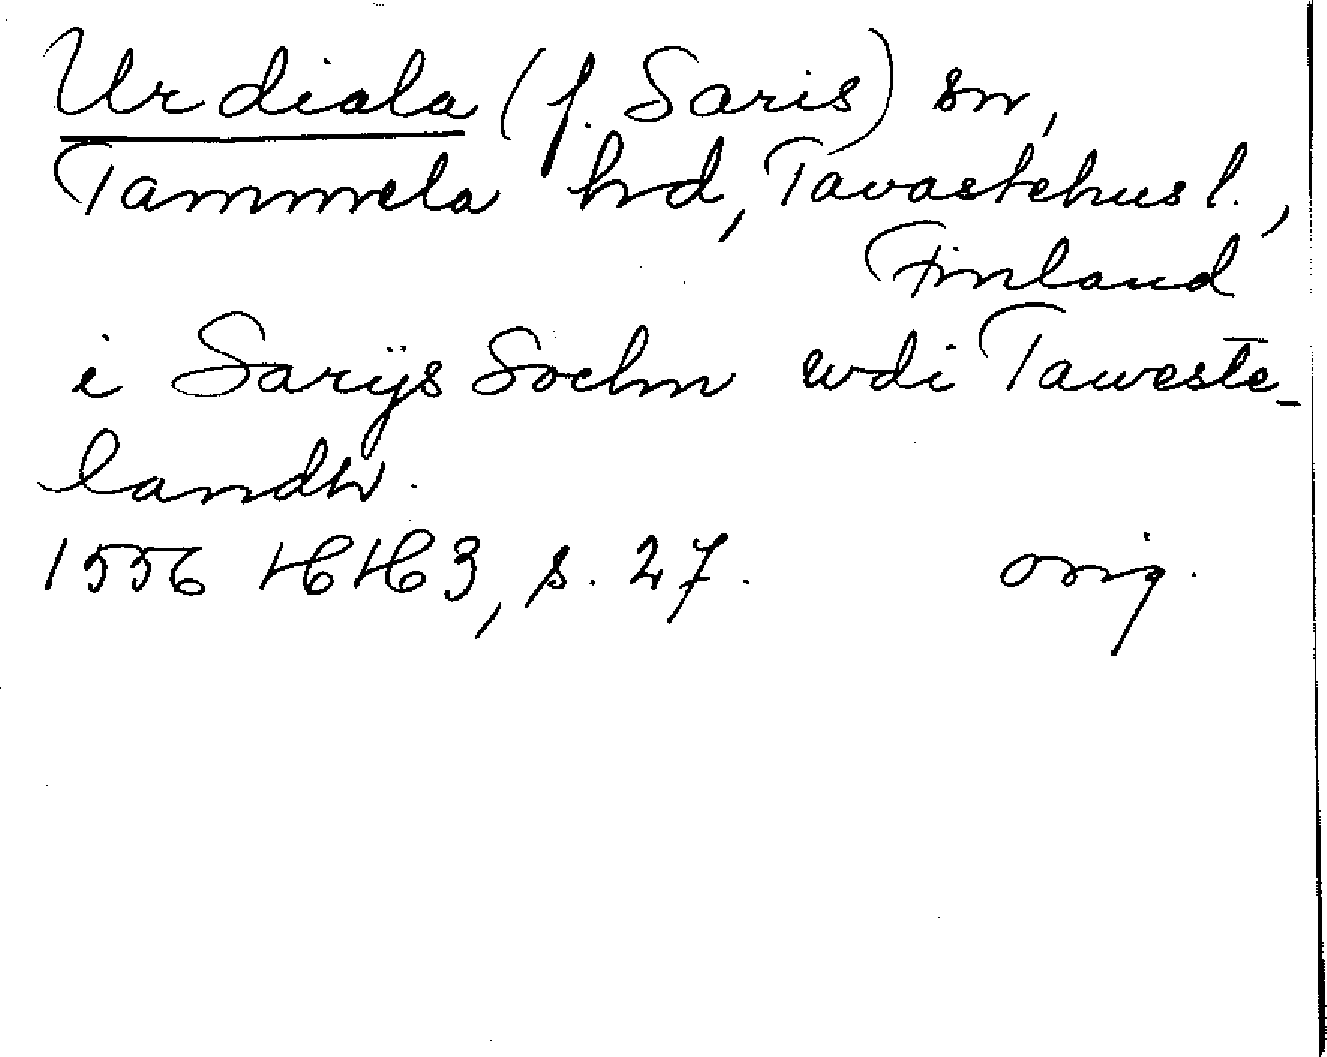 Urdiala (f. Saris) sn,
Tammela hd, Tavastehus l.,
Finland
i Sarÿs Sochn wdi Taweste-
landh.
1556 HH3, s. 27. orig.